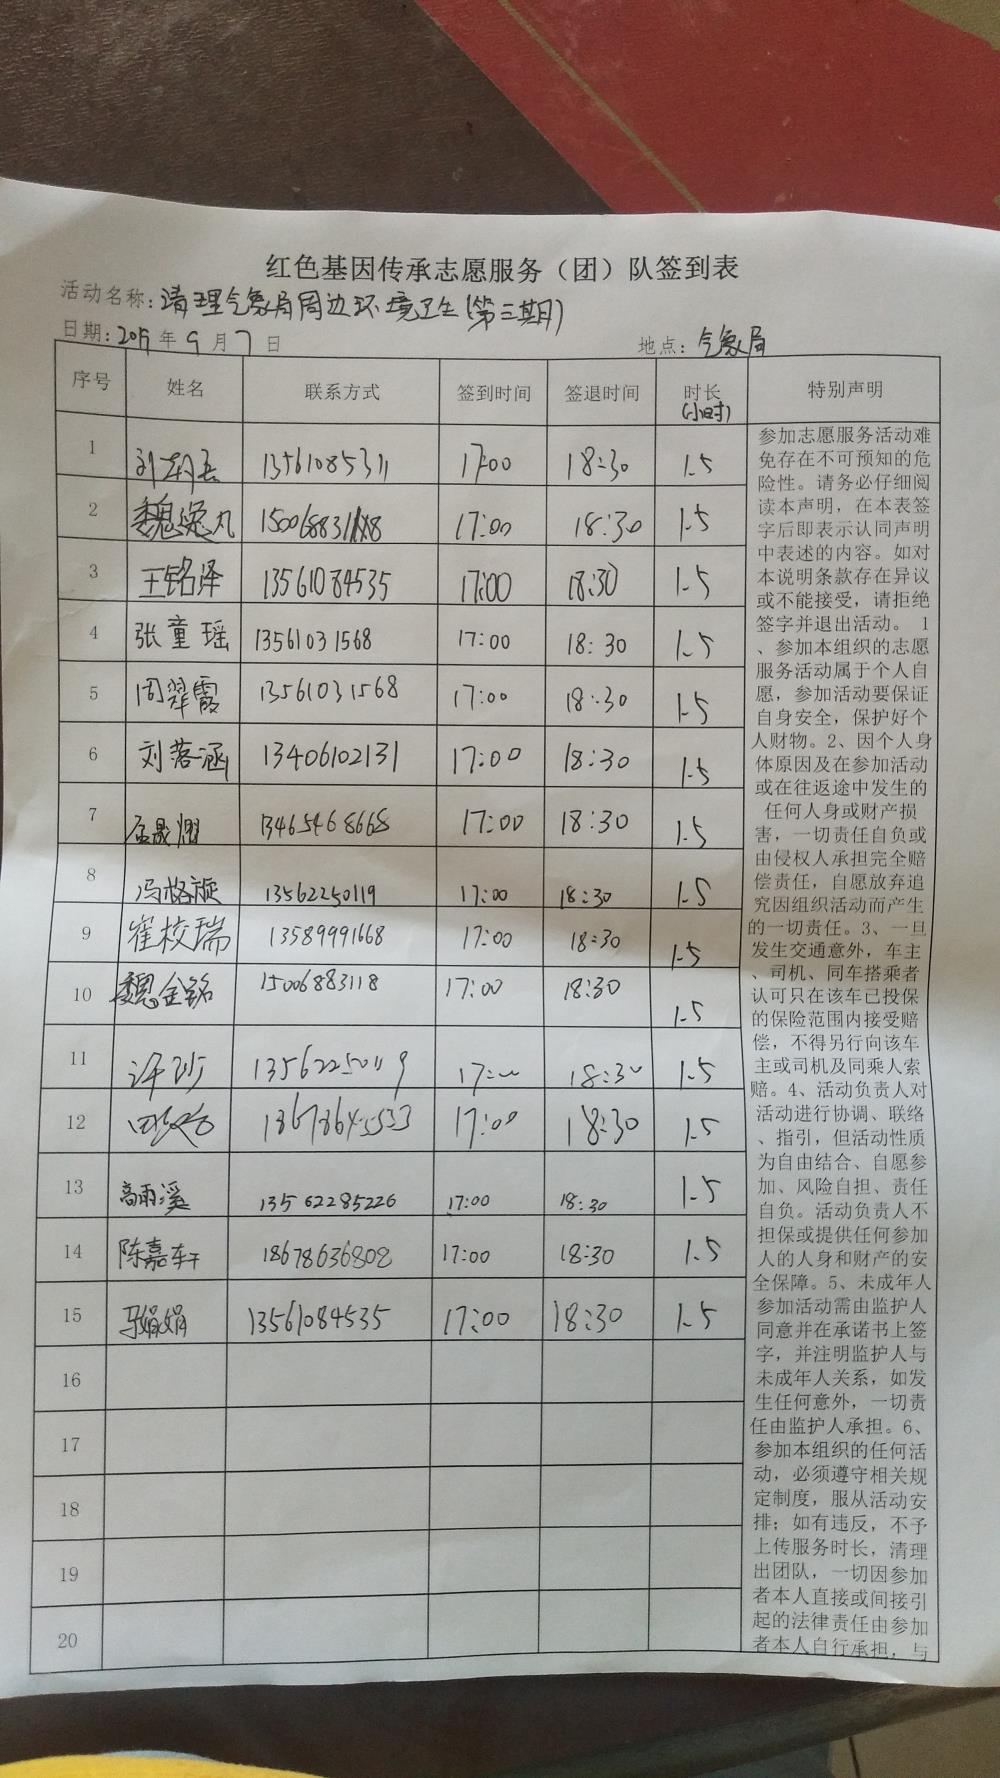 红色基因传承志愿服务（团）队签到表
活动名称：清理气象局周边环境卫生(第三期)
日期：2019年9月7日 地点：气象局
序号 姓名 联系方式 签到时间 签退时间 时长(小时) 特别声明
1 13561085311 17:00 18:30 1.5
2 魏逸凡 17:00 18:30 1.5
3 王铭泽 13561084535 17:00 18:30 1.5
4 张童瑶 13561031568 17:00 18:30 1.5
5 周翠霞 13561031568 17:00 18:30 1.5
6 刘落涵 13406102131 17:00 18:30 1.5
7 13465468668 17:00 18:30 1.5
8 冯格旋 13562250119 17:00 18:30 1.5
9 崔校瑞 13589991668 17:00 18:30 1.5
10 魏金铭 15006883118 17:00 18:30 1.5
11 13562250119 17:00 18:30 1.5
12 17:00 18:30 1.5
13 高雨溪 13562285226 17:00 18:30 1.5
14 陈嘉轩 18678636802 17:00 18:30 1.5
15 马娟娟 13561084535 17:00 18:30 1.5
16
17
18
19
20
参加志愿服务活动难
免存在不可预知的危
险性。请务必仔细阅
读本声明，在本表签
字后即表示认同声明
中表述的内容。如对
本说明条款存在异议
或不能接受，请拒绝
签字并退出活动。 1
、参加本组织的志愿
服务活动属于个人自
愿，参加活动要保证
自身安全，保护好个
人财物。2、因个人身
体原因及在参加活动
或在往返途中发生的
任何人身或财产损
害，一切责任自负或
由侵权人承担完全赔
偿责任，自愿放弃追
究因组织活动而产生
的一切责任。3、一旦
发生交通意外，车主
、司机、同车搭乘者
认可只在该车已投保
的保险范围内接受赔
偿，不得另行向该车
主或司机及同乘人索
赔。4、活动负责人对
活动进行协调、联络
、指引，但活动性质
为自由结合、自愿参
加、风险自担、责任
自负。活动负责人不
担保或提供任何参加
人的人身和财产的安
全保障。5、未成年人
参加活动需由监护人
同意并在承诺书上签
字，并注明监护人与
未成年人关系，如发
生任何意外，一切责
任由监护人承担。6、
参加本组织的任何活
动，必须遵守相关规
定制度，服从活动安
排；如有违反，不予
上传服务时长，清理
出团队，一切因参加
者本人直接或间接引
起的法律责任由参加
者本人自行承担，与